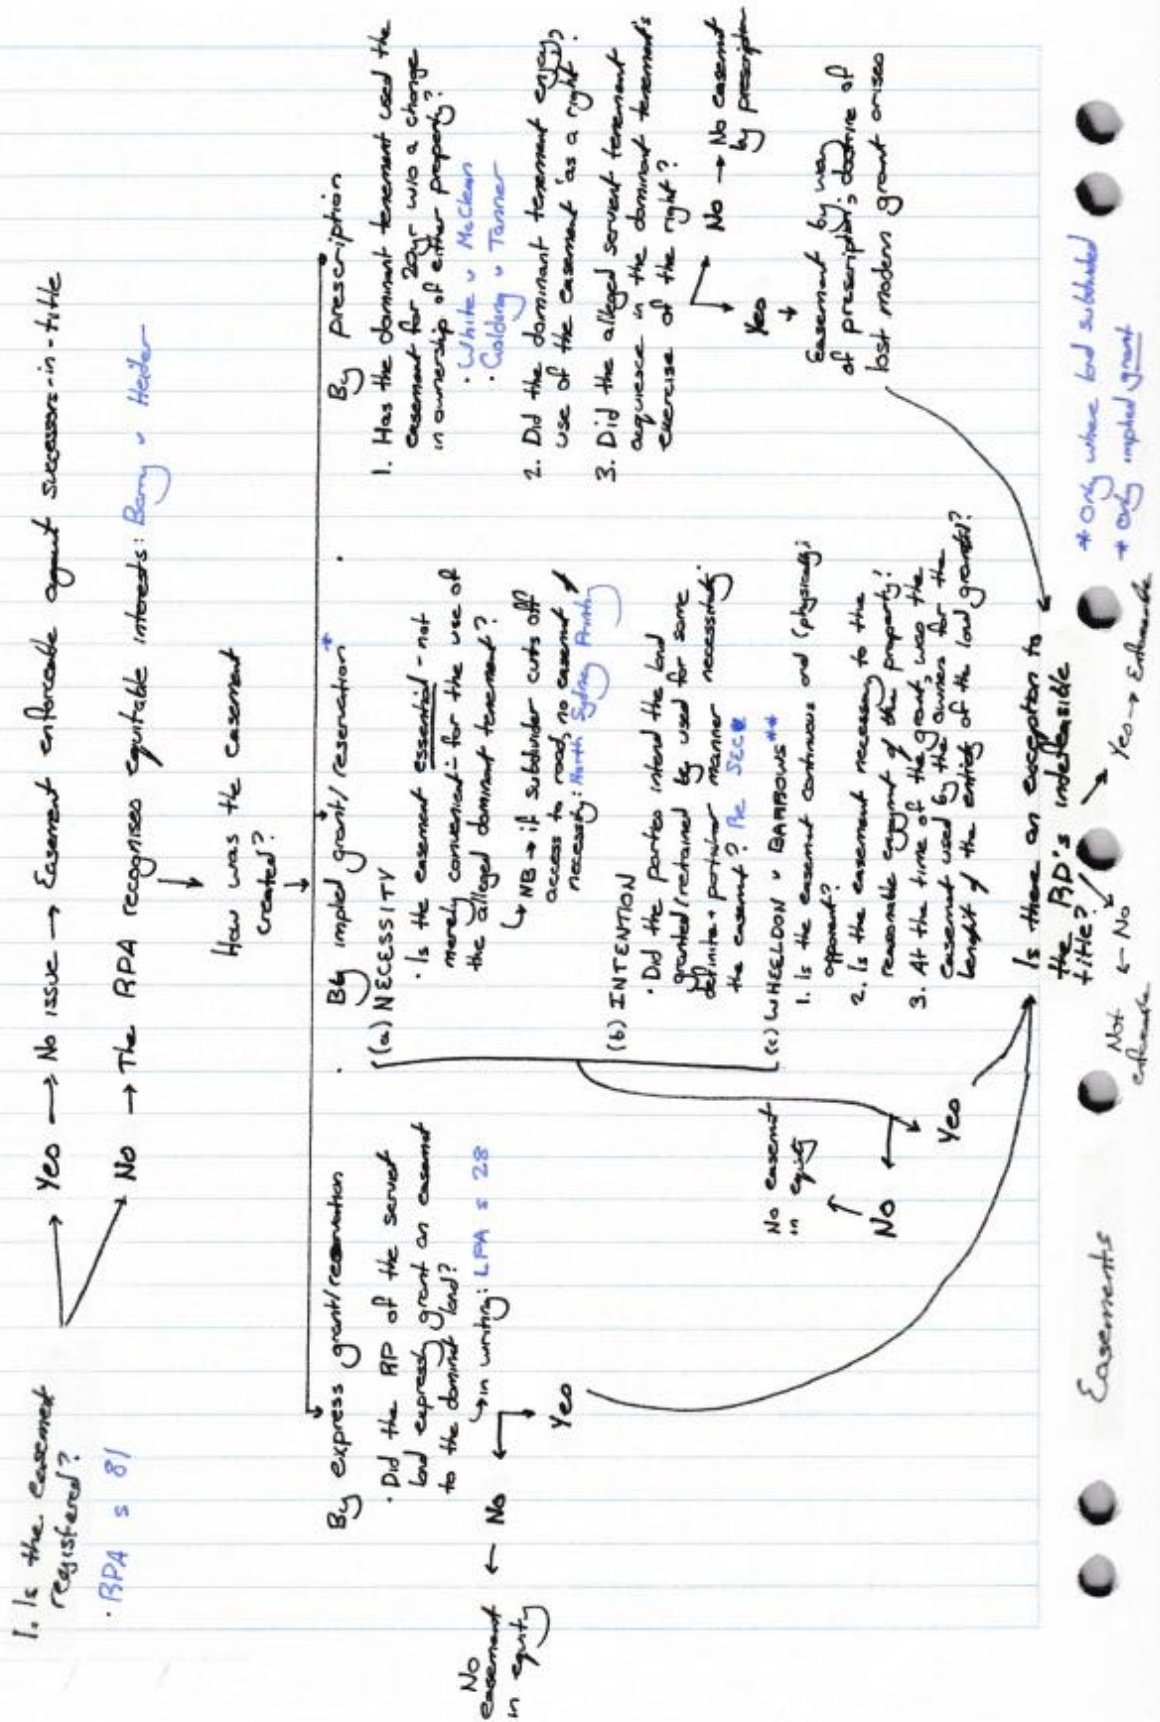 1. Is the easement
registered?
· RPA s 81
Yes → No issue → Easement enforceable against successors-in-title
No → The RPA recognises equitable interests: Barry v Heider
How was the easement
created?
By express grant/reservation
· Did the RP of the servent
land expressly grant an easement
to the dominant land?
↳ in writing: LPA s 28
No
No
easement
in equity
Yes
By implied grant/reservation*
(a) NECESSITY
· Is the easement essential - not
merely convenient - for the use of
the alleged dominant tenement?
↳ NB → if subdivider cuts off
access to road, no easement of
necessity: North Sydney Printing
(b) INTENTION
· Did the parties intend the land
granted/retained be used for some
definite + particular manner necessitating
the easement? Re SEC
(c) WHEELDON v BARROWS**
1. Is the easement continuous and (physically)
apparent?
2. Is the easement necessary to the
reasonable enjoyment of the property?
3. At the time of the grant, was the
easement used by the owners for the
benefit of the entirety of the land granted?
No
No easement
in equity
Yes
By prescription
1. Has the dominant tenement used the
easement for 20yr w/o a change
in ownership of either property?
· White v McClean
· Golding v Tanner
2. Did the dominant tenement enjoy
use of the easement 'as a right'?
3. Did the alleged servent tenement
acquiesce in the dominant tenement's
exercise of the right?
No → No easement
by prescription
Yes
Easement by way
of prescription, doctrine of
lost modern grant arises
Is there an exception to
the RP's indefeasible
title?
← No
Not
enforceable
Yes → Enforceable
* Only where land subdivided
* Only implied grant
Easements